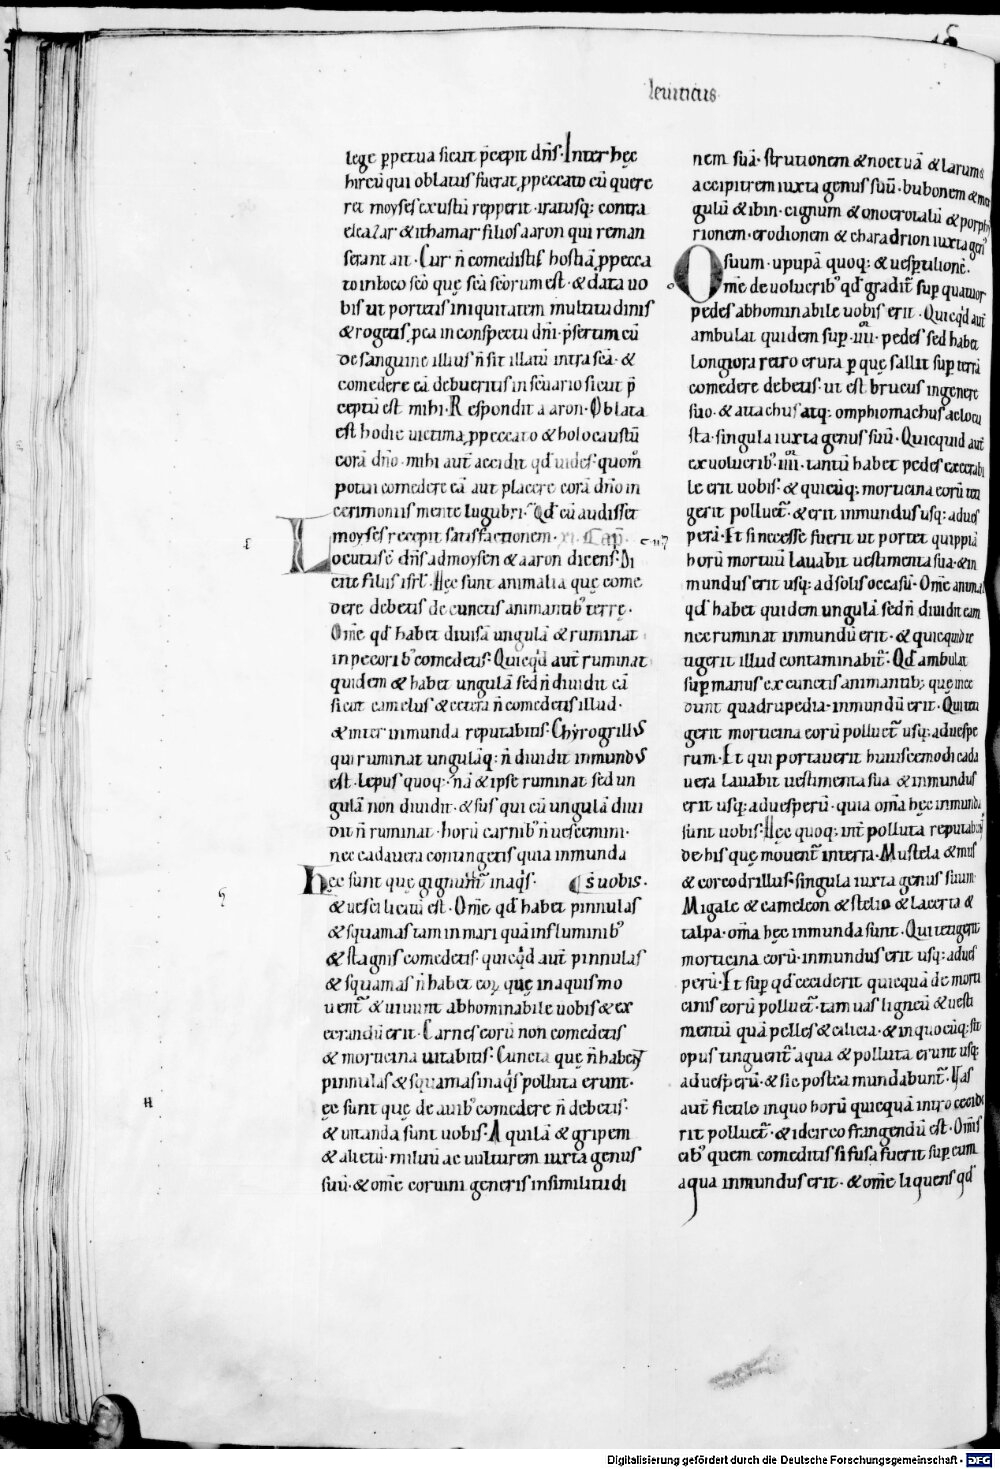 leuiticus
lege ꝑpetua sicut p̄cepit dn̄s. Inter hęc
hircū qui oblatus fuerat ꝓ peccato cū quere
ret moyses exustū repperit. iratusq; contra
eleazar & ithamar filios aaron qui reman
serant ait. Cur n̄ comedistis hostiā ꝓ pecca
to in loco sc̄o que sc̄a sc̄orum est. & data uo
bis ut portetis iniquitatem multitudinis
& rogetis ꝓ ea in conspectu dn̄i. p̄sertim cū
de sanguine illius n̄ sit illatū intra sc̄a. &
comedere eā debueritis in sc̄uario sicut p̄
ceptū est mihi. Respondit aaron. Oblata
est hodie uictima ꝓ peccato & holocaustū
corā dn̄o. mihi aut̄ accidit qd̄ uides. quom̄
potui comedere eā aut placere corā dn̄o in
cerimoniis mente lugubri. Qd̄ cū audisset
moyses recepit satisfactionem. xi. Cap̄.
Locutus ē dn̄s ad moysen & aaron dicens. Di
cite filiis isrl̄. Hec sunt animalia quę come
dere debetis de cunctis animantib; terrę.
Om̄e qd̄ habet diuisā ungulā & ruminat
in pecorib; comedetis. Quicqd̄ aut̄ ruminat
quidem & habet ungulā sed n̄ diuidit eā
sicut camelus & cetera n̄ comedetis illud.
& inter inmunda reputabitis. Chyrogrillus
qui ruminat ungulāq; n̄ diuidit inmundus
est. Lepus quoq; nā & ipse ruminat sed un
gulā non diuidit. & sus qui cū ungulā diui
dit n̄ ruminat. horū carnib; n̄ uescemini.
nec cadauera contingetis quia inmunda
hęc sunt quę gignunt̄ in aqs. s̄ uobis.
& uesci licitū est. Om̄e qd̄ habet pinnulas
& squamas tam in mari quā in fluminib;
& stagnis comedetis. quicqd̄ aut̄ pinnulas
& squamas n̄ habet eoꝝ quę in aquis mo
uent̄ & uiuunt abhominabile uobis & ex
ecrandū erit. Carnes eorū non comedetis
& morticina uitabitis. Cuncta quę n̄ habent
pinnulas & squamas in aqs polluta erunt.
ęc sunt quę de auib; comedere n̄ debetis.
& uitanda sunt uobis. Aquilā & gripem
& alietū. miluū ac uulturem iuxta genus
suū. & om̄e coruini generis in similitudi
nem suā. strutionem & noctuā & larum &
accipitrem iuxta genus suū. bubonem & mer
gulū & ibin. cignum & onocrotalū & porphi
rionem. erodionem & charadrion iuxta gen;
suum. upupā quoq; & uesꝑtilionē.
Om̄e de uolucrib; qd̄ gradit̄ suꝑ quatuor
pedes abhominabile uobis erit. Quicqd̄ aut̄
ambulat quidem suꝑ .iiii. pedes sed habet
longiora retro crura ꝑ quę salit suꝑ terrā
comedere debetis. ut est brucus in genere
suo. & attachus atq; omphiomachus ac locu
sta. singula iuxta genus suū. Quicquid aut̄
ex uolucrib; .iiii. tantū habet pedes execrabi
le erit uobis. & quicūq; morticina eorū teti
gerit polluet̄. & erit inmundus usq; ad ues
perā. Et si necesse fuerit ut portet quippiā
horū mortuū lauabit uestimenta sua. & in
mundus erit usq; ad solis occasū. Om̄e animal
qd̄ habet quidem ungulā sed n̄ diuidit eam
nec ruminat inmundū erit. & quicquid te
tigerit illud contaminabit̄. Qd̄ ambulat
suꝑ manus ex cunctis animantib; quę ince
dunt quadrupedia inmundū erit. Qui teti
gerit morticina eorū polluet̄ usq; ad uespe
rum. Et qui portauerit huiuscemodi cada
uera lauabit uestimenta sua & inmundus
erit usq; ad uesperū. quia om̄a hęc inmunda
sunt uobis. Hęc quoq; int̄ polluta reputabunt̄
de his quę mouent̄ in terra. Mustela & mus
& corcodrillus. singula iuxta genus suum.
Migale & cameleon & stelio & lacerta &
talpa. om̄a hęc inmunda sunt. Qui tetigerit
morticina eorū. inmundus erit usq; ad ues
perū. Et suꝑ qd̄ ceciderit quicquā de morti
cinis eorū polluet̄. tam uas ligneū & uesti
mentū quā pelles & cilicia. & in quocūq; fit
opus tinguent̄ aqua & polluta erunt usq;
ad uesperū. & sic postea mundabunt̄. Uas
aut̄ fictile in quo horū quicquā intro cecide
rit polluet̄. & idcirco frangendū est. Om̄is
cib; quem comeditis si fusa fuerit suꝑ eum
aqua inmundus erit. & om̄e liquens qd̄
Digitalisierung gefördert durch die Deutsche Forschungsgemeinschaft - DFG